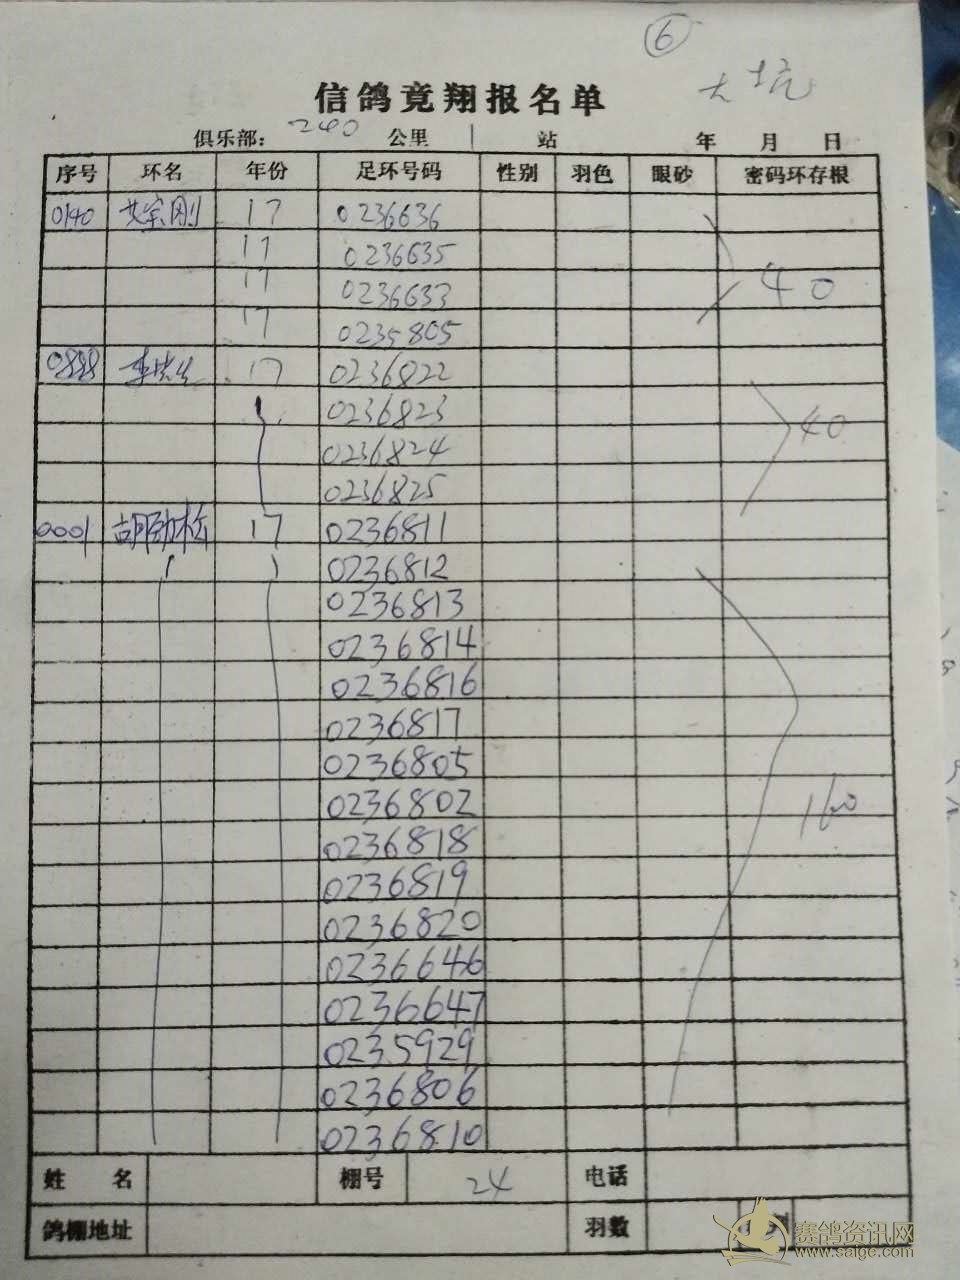 6
大坑
信鸽竟翔报名单
俱乐部： 240 公里 站 年 月 日
序号 环名 年份 足环号码 性别 羽色 眼砂 密码环存根
0140 艾宗刚 17 0236636
17 0236635
17 0236633 40
17 0235805
0888 17 0236822
0236823
0236824 40
0236825
0001 胡劲松 17 0236811
0236812
0236813
0236814
0236816
0236817
0236805
0236802 160
0236818
0236819
0236820
0236646
0236647
0235929
0236806
0236810
姓 名 棚号 24 电话
鸽棚地址 羽数
赛鸽资讯网
www.saige.com